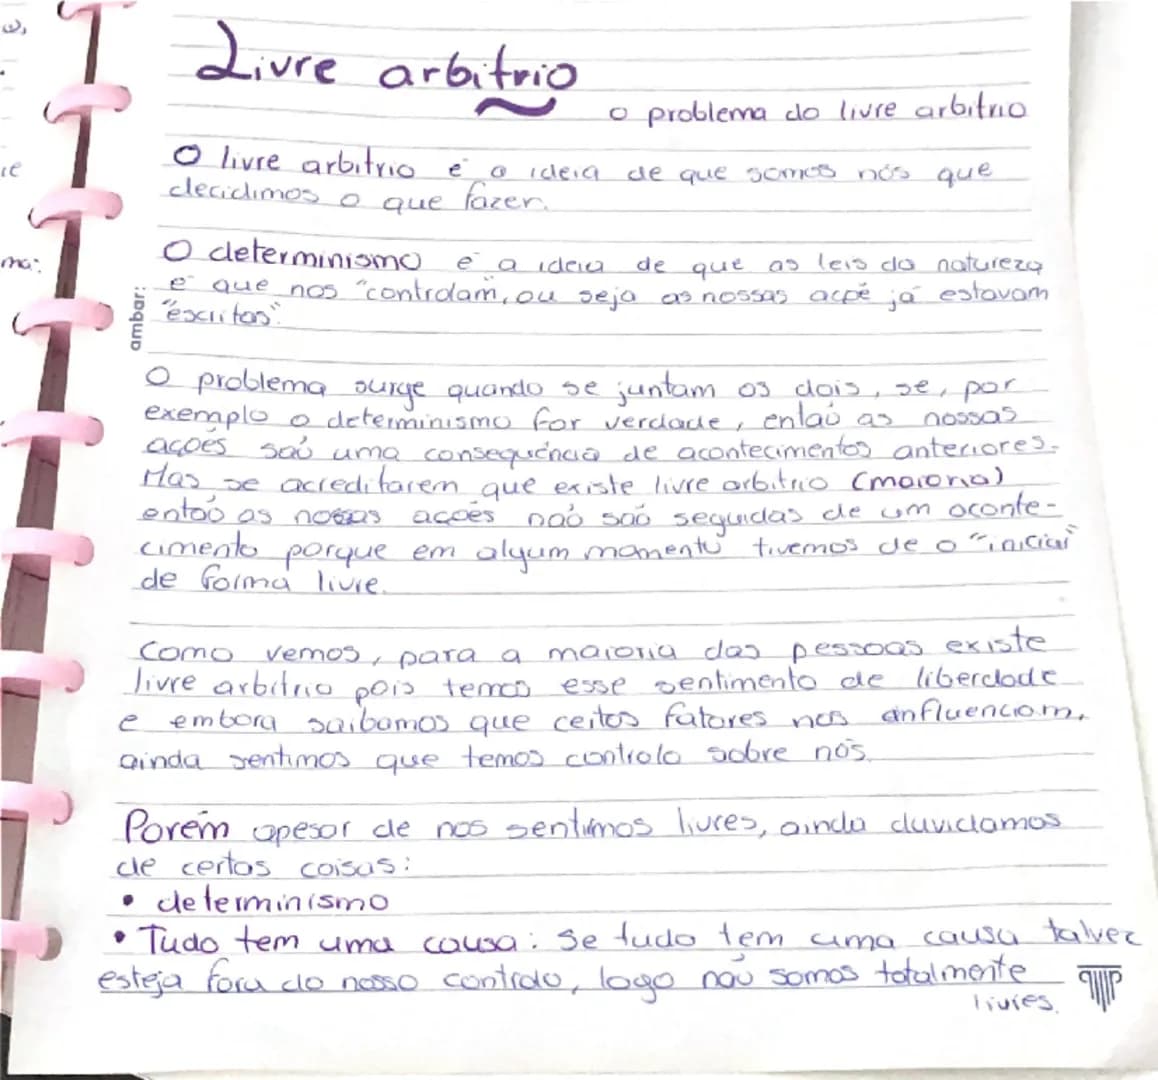 Livre arbitrio
o problema do livre arbitrio
O livre arbitrio é a ideia de que somos nós que
decidimos o que fazer.
O determinismo é a ideia de que as leis da natureza
é que nos "controlam, ou seja as nossas acpé já estavam
"escritas".
ambar:
O problema surge quando se juntam os dois, se, por
exemplo o determinismo for verdade, então as nossas
ações são uma consequência de acontecimentos anteriores.
Mas se acreditarem que existe livre arbitrio (maioria)
então as nossas acões não são seguidas de um aconte-
cimento porque em algum momento tivemos de o "iniciar"
de forma livre.
Como vemos, para a maioria das pessoas existe
livre arbitrio pois temos esse sentimento de liberdade
e embora saibamos que certos fatores nos influenciam,
ainda sentimos que temos controlo sobre nós.
Porém apesar de nos sentirmos livres, ainda duvidamos
de certas coisas:
• determinismo
• Tudo tem uma causa: Se tudo tem uma causa talvez
esteja fora do nosso controlo, logo não somos totalmente
livres.
ie
ma: